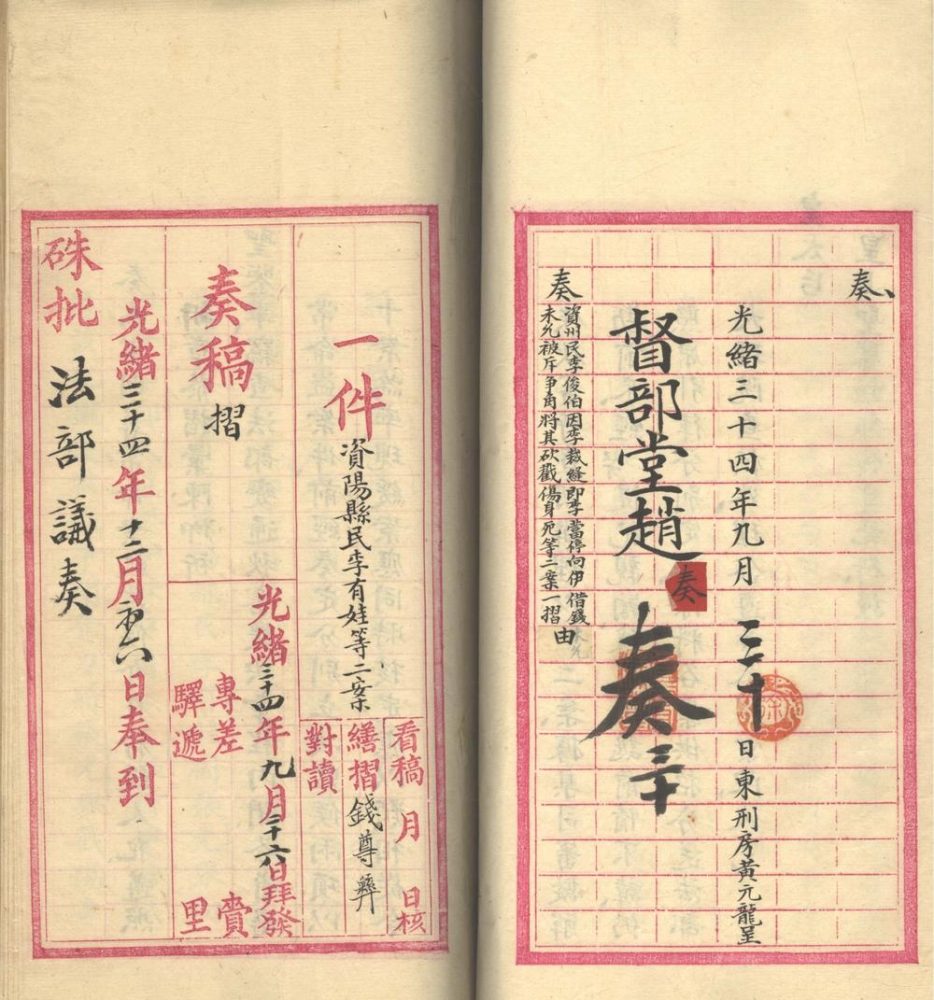 奏
光緒三十四年九月三十日東刑房黃元龍呈
督部堂趙
奏
奏三十
奏
資州民李俊伯因李裁縫即李當停向伊借錢
未允被斥爭角將其砍戳傷身死等二案一摺
由
一件資陽縣民李有娃等二案
看稿 月 日核
繕摺錢尊彝
對讀
奏稿摺
光緒三十四年九月二十六日拜發
專差 賫
驛遞 里
光緒三十四年十二月初六日奉到
硃批 法部議奏